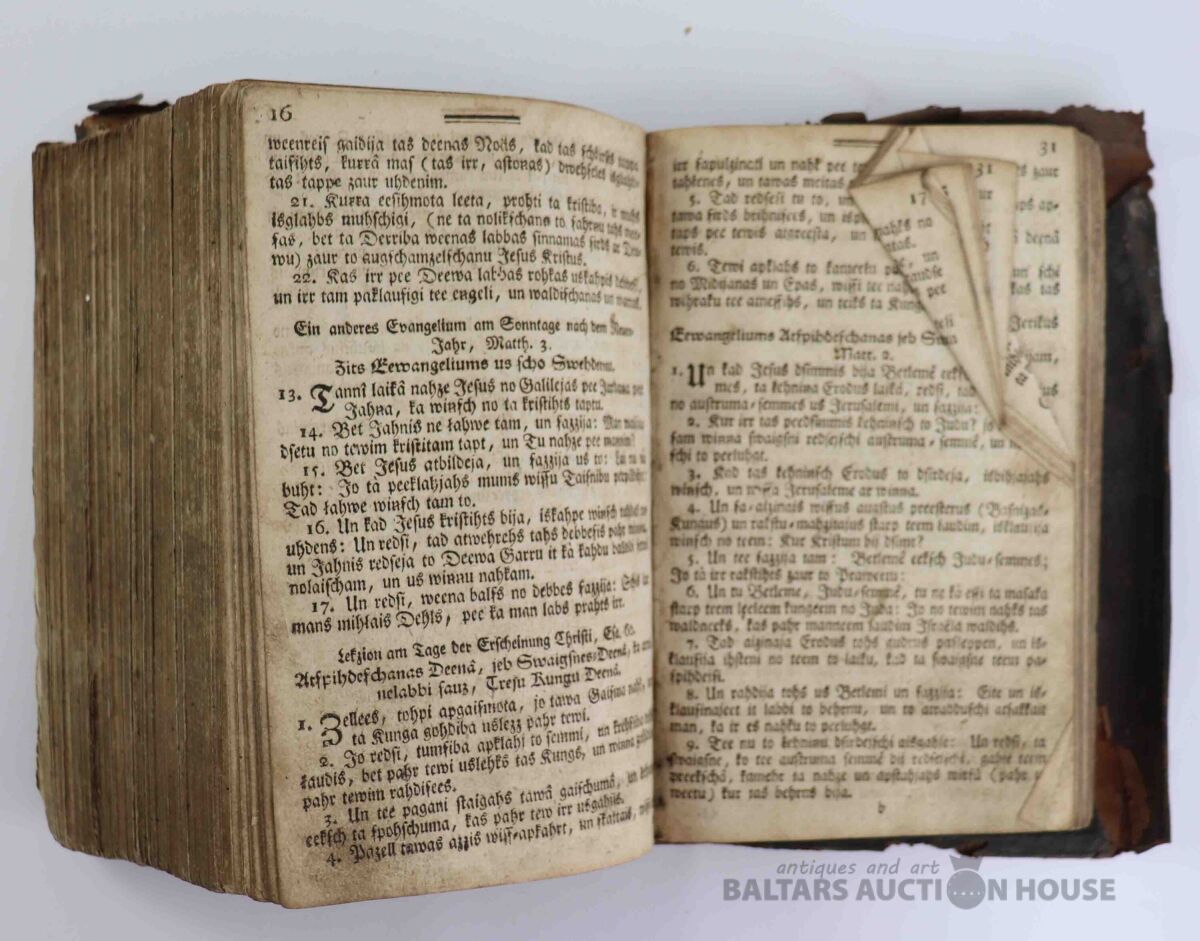 16
weenreis gaidija tas deenas Noäs, kad tas
taisihts, kurrâ mas (tas irr, astonas) dwehseles
tas tappe zaur uhdenim.
21. Kurra eesihmota leeta, prohti ta kristiba, ir
isglahbs muhschigi, (ne ta nolikschana to
sas, bet ta Derriba weenas labbas sinnamas sirds ar Dee-
wu) zaur to augschamzelschanu Jesus Kristus.
22. Kas irr pee Deewa labbas rohkas uskahpis
un irr tam paklausigi tee engeli, un waldischanas un
Ein anderes Evangelium am Sonntage nach dem Neuen
Jahr, Matth. 3.
Zits Eewangeliums us scho Swehdenu.
13. Tannî laikâ nahze Jesus no Galilejas pee
Jahna, ka winsch no ta kristihts taptu.
14. Bet Jahnis ne ļahwe tam, un sazzija:
dsetu no tewim kristitam tapt, un Tu nahze pee mannim?
15. Bet Jesus atbildeja, un sazzija us to:
buht: Jo tà peeklahjahs mums wissu Taisnibu
Tad ļahwe winsch tam to.
16. Un kad Jesus kristihts bija, iskahpe winsch
uhdens: Un redsi, tad atwehrehs tahs debbesis pahr
un Jahnis redseja to Deewa Garru it kà kahdu
nolaischam, un us winnu nahkam.
17. Un redsi, weena balss no debbes sazzija: Schis
mans mihļais Dehls, pee ka man labs prahts irr.
Lekzion am Tage der Erscheinung Christi, Esa. 60.
Atspihdeschanas Deenâ, jeb Swaigsnes-Deenâ,
nelabbi sauz, Treju Kungu Deenâ.
1. Zellees, tohpi apgaismota, jo tawa Gaisma
ta Kunga gohdiba uslezz pahr tewi.
2. Jo redsi, tumsiba apklahj to semmi, un
ļaudis, bet pahr tewi uslehks tas Kungs, un winna
pahr tewim rahdisees.
3. Un tee pagani staigahs tawâ gaischumâ, un
eeksch ta spohschuma, kas pahr tew irr usgahjis.
4. Pazell tawas azzis wiss-apkahrt, un skattais,
31
irr sapulzinati un nahk pee
tahlenes, un tawas meitas
5. Tad redsesi tu to, un
tawa sirds brihnisees, un
taps pee tewis atgreesta, un
tewis.
6. Tewi apklahs to kameeļu
no Midijanas un Epas, wissi tee
wihraku tee atnessihs, un teiks ta
31
17
nahks no
un
pee
Jerikus
Eewangeliums Atspihdeschanas jeb
Matt. 2.
1. Un kad Jesus dsimmis bija Betlemê
mes, ta kehnina Erodus laikâ, redsi, tad
no austruma-semmes us Jerusalemi, un sazzija:
2. Kur irr tas peedsimmis kehninsch to Judu?
sam winna swaigsni redsejschi austruma-semmê, un
schi to peeluhgt.
3. Kad tas kehninsch Erodus to dsirdeja, isbihjajahs
winsch, un wissa Jerusaleme ar winna.
4. Un sa-aizinais wissus augstus preesterus (Basnizas-
Kungus) un rakstu-mahzitajus starp teem ļaudim, isklausija
winsch no teem: Kur Kristum bij dsimt?
5. Un tee sazzija tam: Betlemê eeksch Judu-semmes;
Jo tà irr rakstihts zaur to Praweetu:
6. Un tu Betleme, Judu-semmê, tu ne kà essi ta masaka
starp teem leeleem kungeem no Juda: Jo no tewim nahks tas
waldneeks, kas pahr manneem ļaudim Israëla waldihs.
7. Tad aizinaja Erodus tohs gudrus passleppen, un is-
klausija ihsteni no teem to laiku, kad ta swaigsne teem pa-
spihdejsi.
8. Un rahdija tohs us Betlemi un sazzija: Eite un is-
klausinajeet it labbi to behrnu, un to atradduschi atsakkait
man, ka ir es nahku to peeluhgt.
9. Tee nu to kehninu dsirdejschi aisgahje: Un redsi, ta
swaigsne, ko tee austruma semmê bij redsejschi, gahje teem
preekschâ, kamehr ta nahze un apstahjahs wirsû (pahr
weetu) kur tas behrns bija.
b
antiques and art
BALTARS AUCTION HOUSE